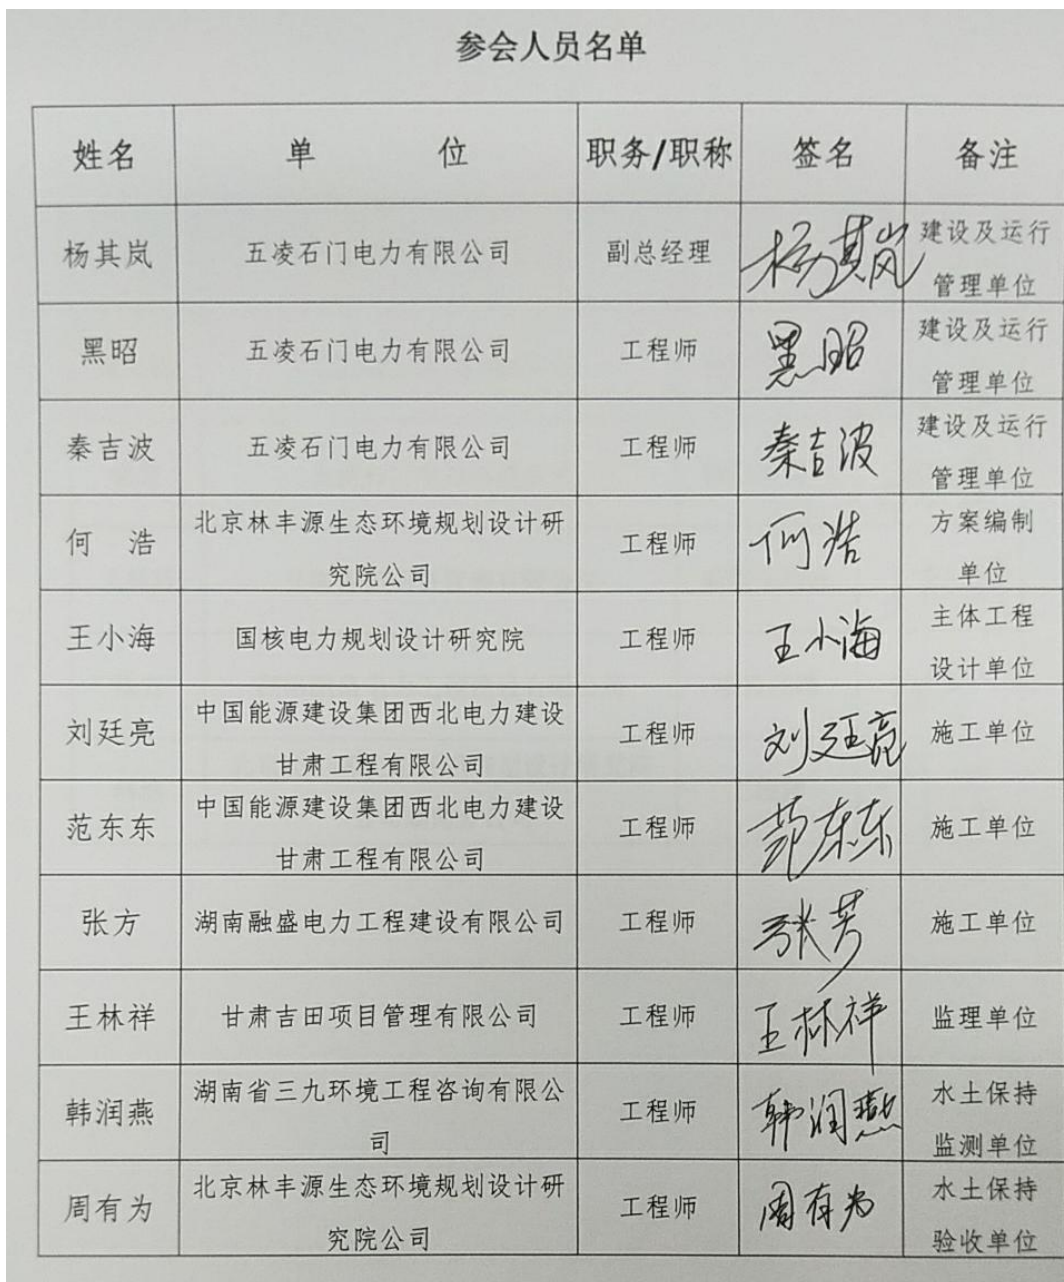 参会人员名单
姓名 单 位 职务/职称 签名 备注
杨其岚 五凌石门电力有限公司 副总经理 杨其岚 建设及运行
管理单位
黑昭 五凌石门电力有限公司 工程师 黑昭 建设及运行
管理单位
秦吉波 五凌石门电力有限公司 工程师 秦吉波 建设及运行
管理单位
何 浩 北京林丰源生态环境规划设计研
究院公司 工程师 何浩 方案编制
单位
王小海 国核电力规划设计研究院 工程师 王小海 主体工程
设计单位
刘廷亮 中国能源建设集团西北电力建设
甘肃工程有限公司 工程师 刘廷亮 施工单位
范东东 中国能源建设集团西北电力建设
甘肃工程有限公司 工程师 范东东 施工单位
张方 湖南融盛电力工程建设有限公司 工程师 张芳 施工单位
王林祥 甘肃吉田项目管理有限公司 工程师 王林祥 监理单位
韩润燕 湖南省三九环境工程咨询有限公
司 工程师 韩润燕 水土保持
监测单位
周有为 北京林丰源生态环境规划设计研
究院公司 工程师 周有为 水土保持
验收单位